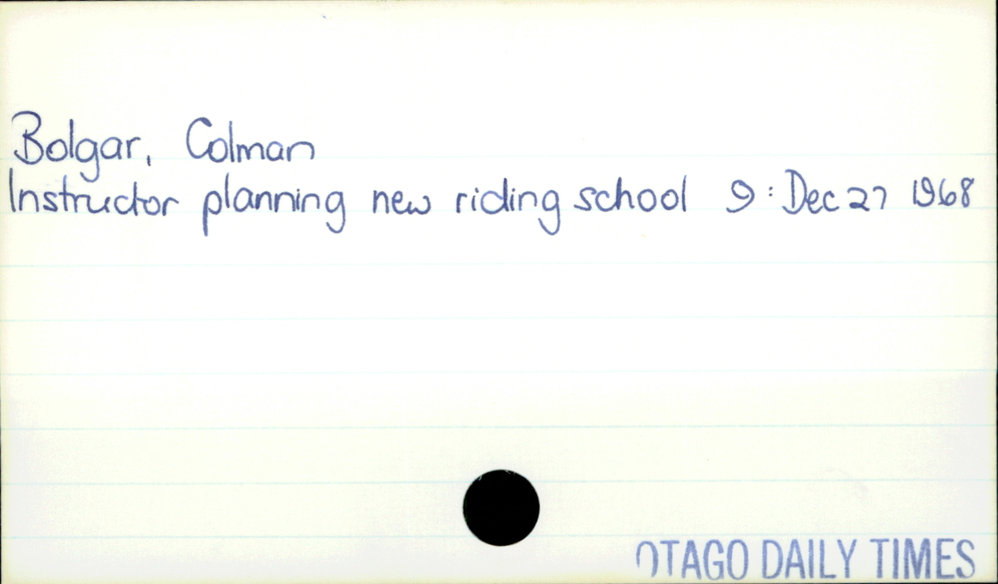 Bolgar, Colman
Instructor planning new riding school 9 : Dec 27 1968
OTAGO DAILY TIMES